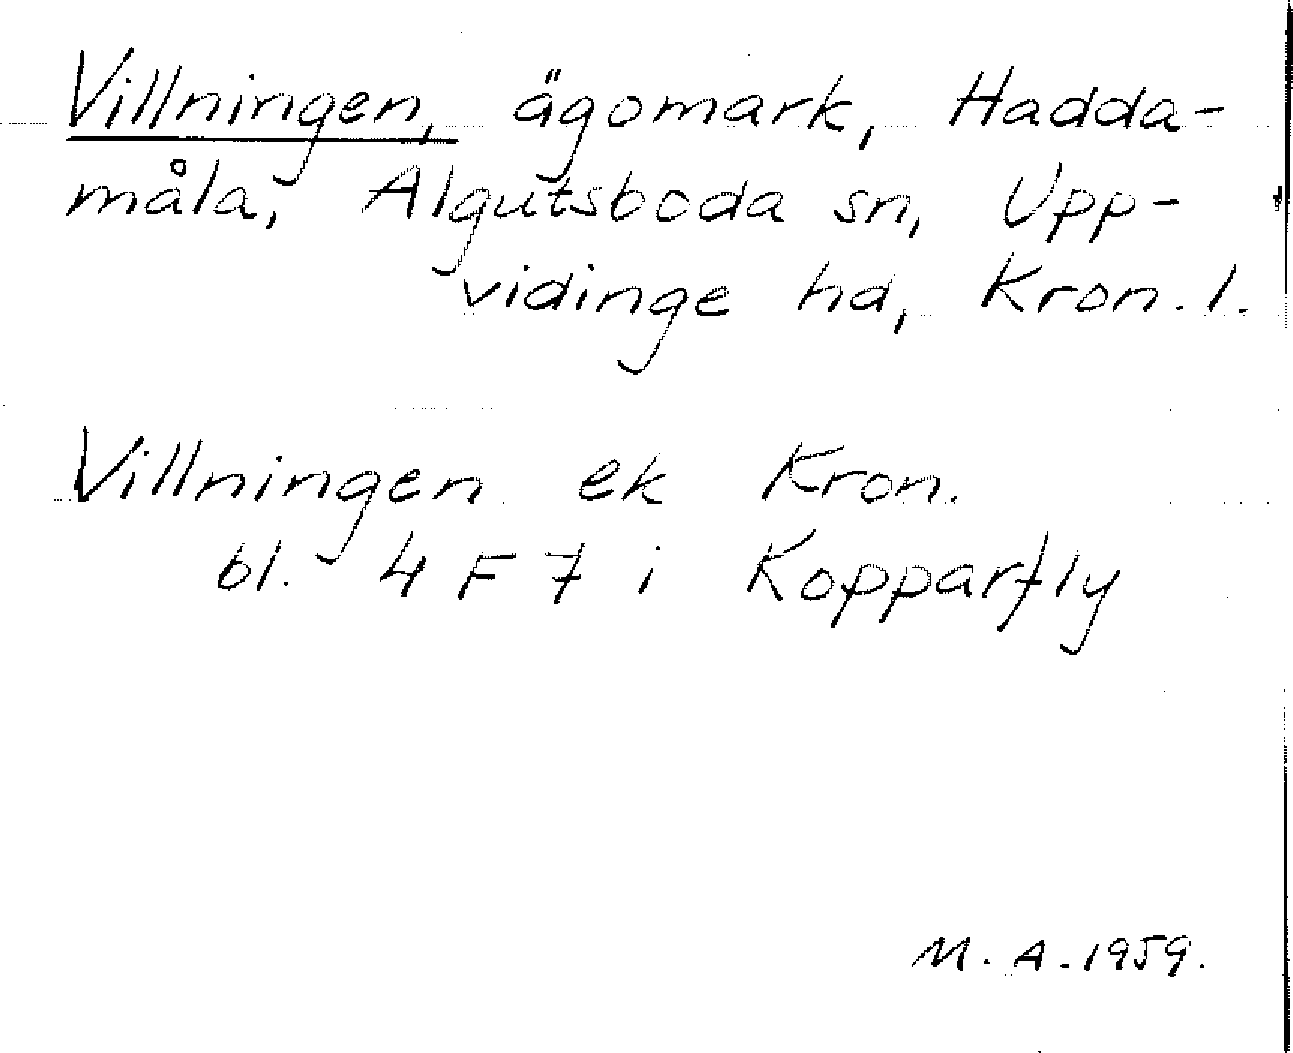 Villningen, ägomark, Hadda-
måla, Algutsboda sn, Upp-
vidinge hd, Kron. l.
Villningen ek Kron.
bl. 4 F 7 i Kopparfly
M. A. 1959.